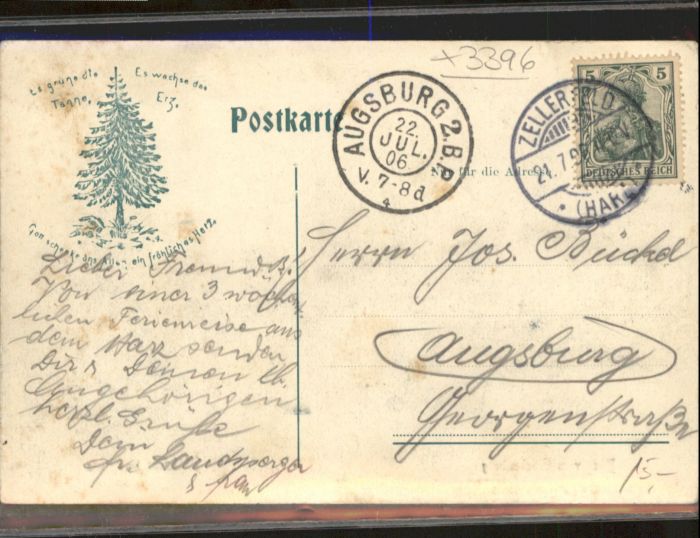 Es grüne die Tanne,
Es wachse das Erz,
Gott schenke uns Allen ein fröhliches Herz.
Postkarte
Nur für die Adresse.
AUGSBURG 2.B.
22.
JUL.
06
V. 7-8 d
ZELLERFELD
21.7.06
(HARZ)
5 5
DEUTSCHES REICH
x3396
Lieber Freund!
Von einer 3 wöchent-
lichen Ferienreise aus
dem Harz senden
Dir & Deinen lb.
Angehörigen
herzl. Grüße
Dein
Landsperger
& Frau
Herrn Jos. Büchel
Augsburg
Georgenstraße
15,-